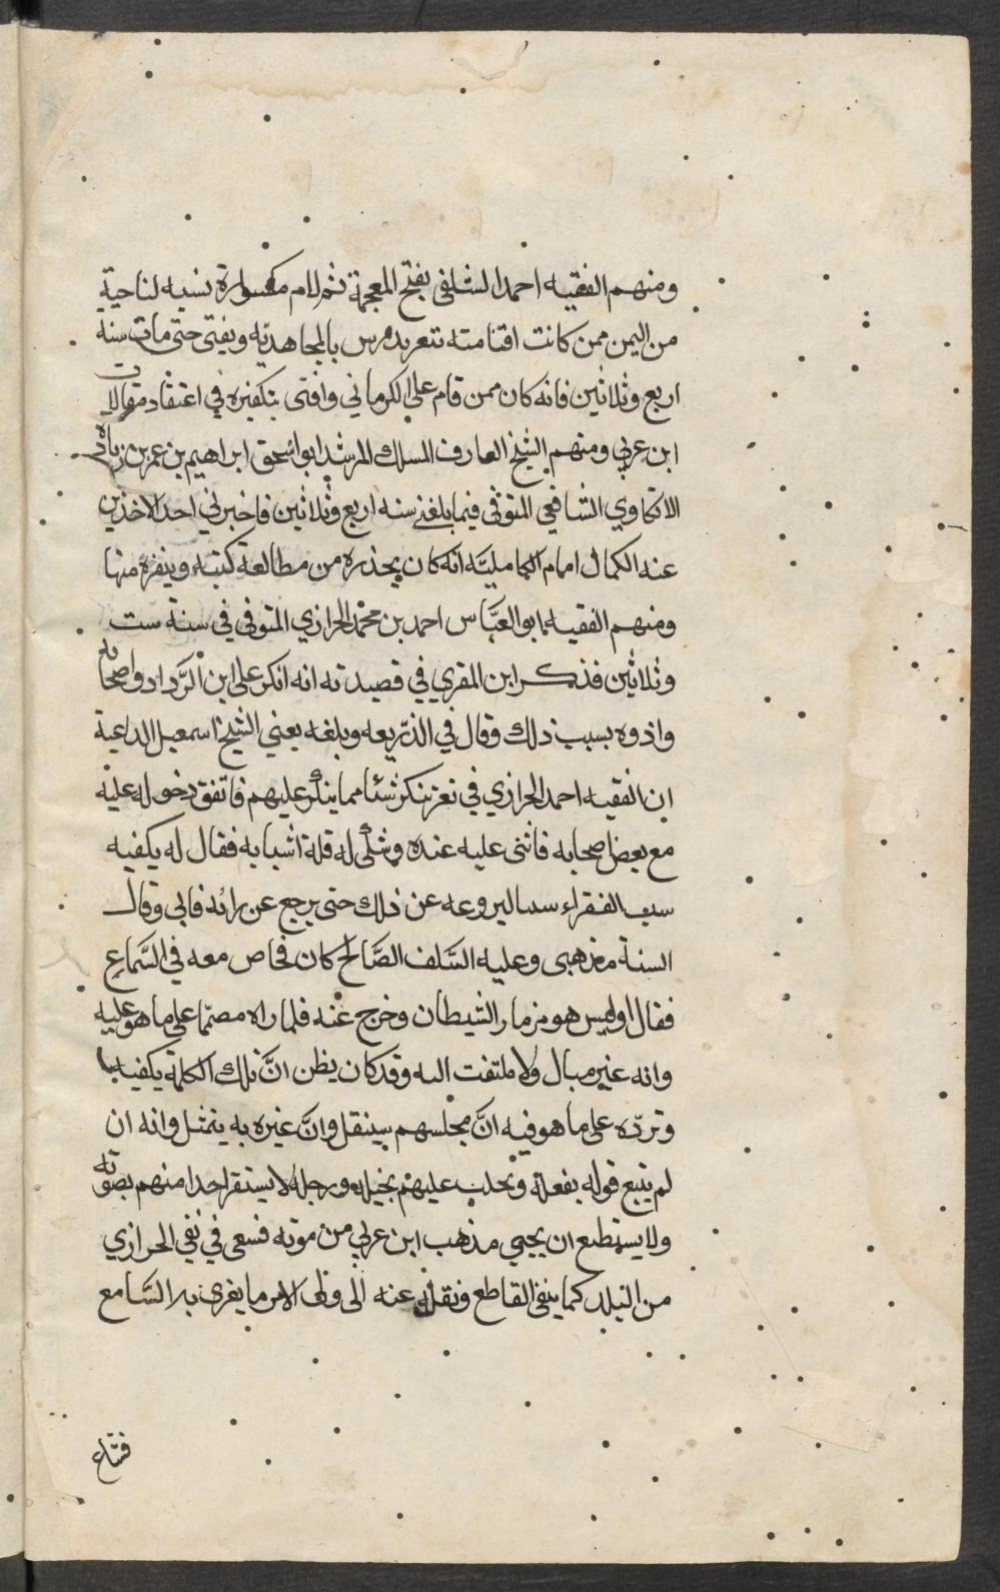 ومنهم الفقيه احمد الشلفى بفتح المعجمة ثم لام مكسورة نسبه لناحية
من اليمن ممن كانت اقامته بتعز يدرس بالمجاهدية ويفتى حتى مات سنة
اربع وثلاثين فانه كان ممن قام على الكرماني وافتى بتكفيره في اعتقاد مقالات
ابن عربي ومنهم الشيخ العارف المسلك المرشد ابو اسحق ابراهيم بن عمر بن زياده
الاتكاوي الشافعي المتوفى فيما بلغني سنه اربع وثلاثين فاخبرني احد الاخذين
عنه الكمال امام الكامليّه انه كان يحذره من مطالعة كتبه وينفره منها
ومنهم الفقيه ابو العبّاس احمد بن محمّد الحرازي المتوفى في سنة ست
وثلاثين فذكر ابن المقري في قصيدته انه انكر على ابن الرّداد واصحابه
واذوه بسبب ذلك وقال في الذّريعه وبلغه يعني الشيخ اسمعيل الداعية
ان الفقيه احمد الحرازي في تعز ينكر شئا مما ينكر عليهم فاتفق دخوله عليه
مع بعض اصحابه فاثنى عليه عنده وشكى له قلة اسبابه فقال له يكفيه
سيف الفقراء ليروعه عن ذلك حتى يرجع عن رائه فابى وقال
السنة مذهبى وعليه السّلف الصّالح كان فخاص معه في السّماع
فقال اوليس هو مزمار الشيطان وخرج عنه فلما راه مصمّما على ما هو عليه
وانه غير مبال ولا ملتفت اليه وقد كان يظن انّ تلك الكلمة يكفيها
وتردّه على ما هو فيه انّ مجلسهم سينقل وانّ غيره به يتمثل وانه ان
لم يتبع قوله بفعله ويجلب عليهم بخيله ورجله لا يستفز احدا منهم بصوته
ولا يستطع ان يحيي مذهب ابن عربي من موته فسعى في نفي الحرازي
من البلد كما ينفى القاطع ونقل عنه الى ولى الامر ما يغرى به السّامع